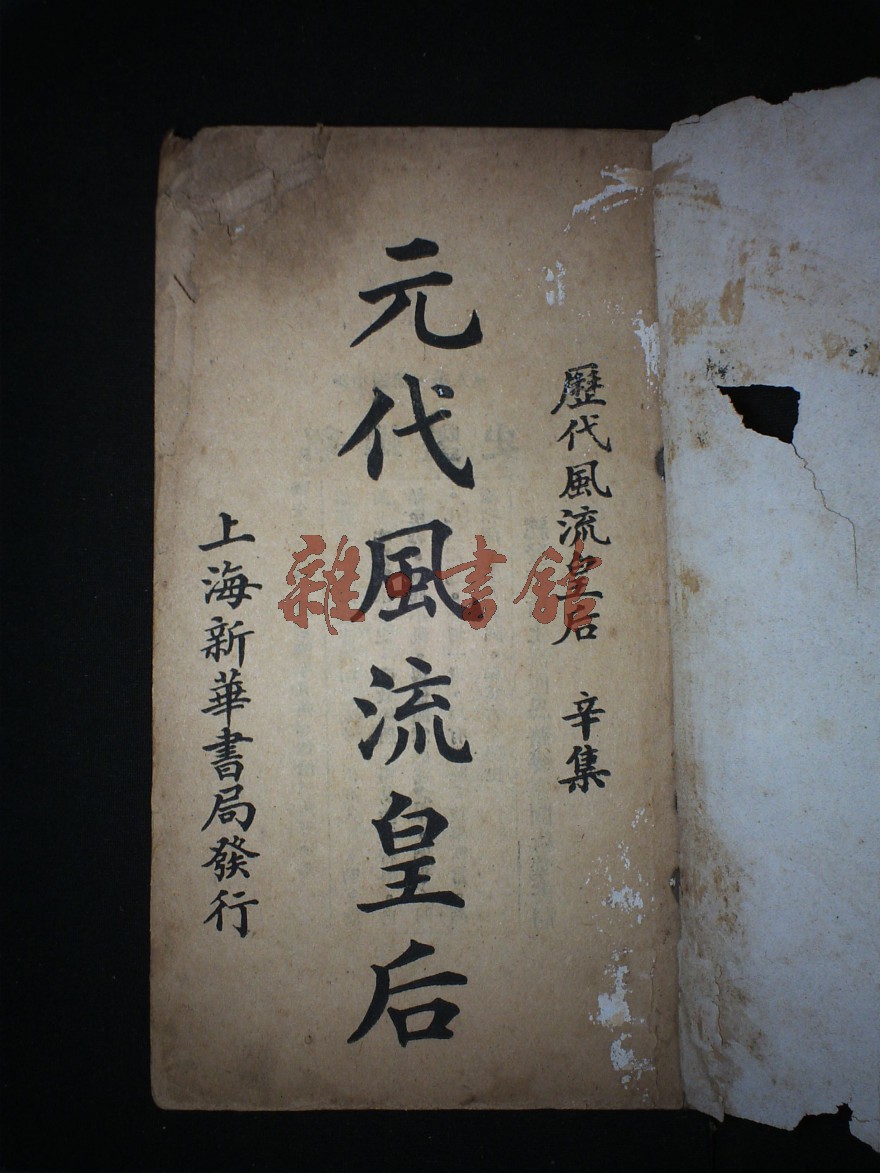 歷代風流皇后 辛集
元代風流皇后
上海新華書局發行
雜·書館